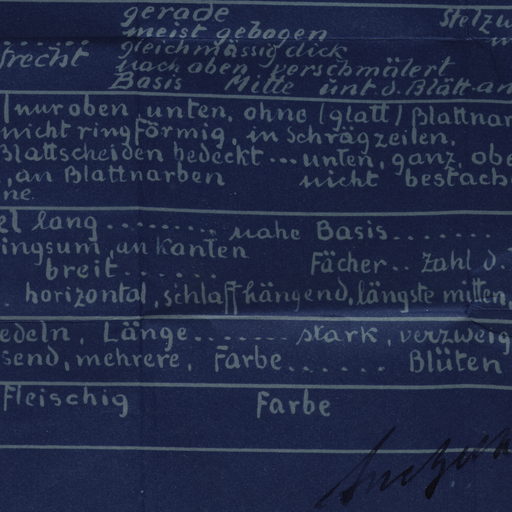 gerade
meist gebogen
frecht gleichmässig dick
nach oben verschmälert
Basis Mitte unt d. Blatt-an
nur oben, unten, ohne (glatt) Blattnar
nicht ringförmig, in Schrägzeilen,
Blattscheiden bedeckt ... unten, ganz, obe
, an Blattnarben nicht bestach
ne
el lang ......... nahe Basis ........
ingsum, an Kanten
breit ....... Fächer .. Zahl d.
. horizontal, schlaff hängend, längste mitten,
edeln, Länge ....... stark, verzweig
send, mehrere, Farbe ...... Blüten
Fleischig Farbe